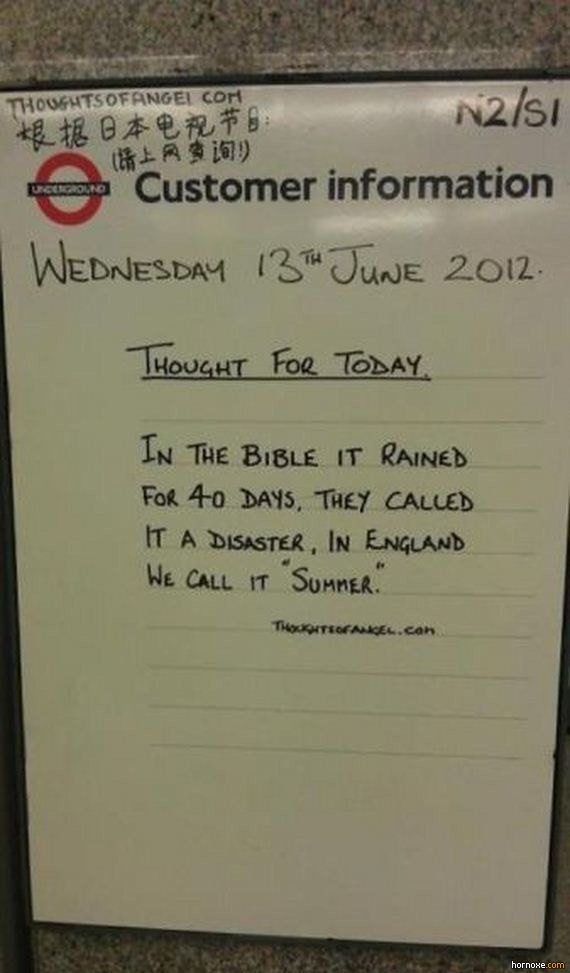 THOUGHTSOFANGEL.COM
N2/S1
根据日本电视节目:
(请上网查询!)
UNDERGROUND
Customer information
WEDNESDAY 13TH JUNE 2012.
THOUGHT FOR TODAY.
IN THE BIBLE IT RAINED
FOR 40 DAYS, THEY CALLED
IT A DISASTER, IN ENGLAND
WE CALL IT "SUMMER."
THOUGHTSOFANGEL.COM
hornoxe.com